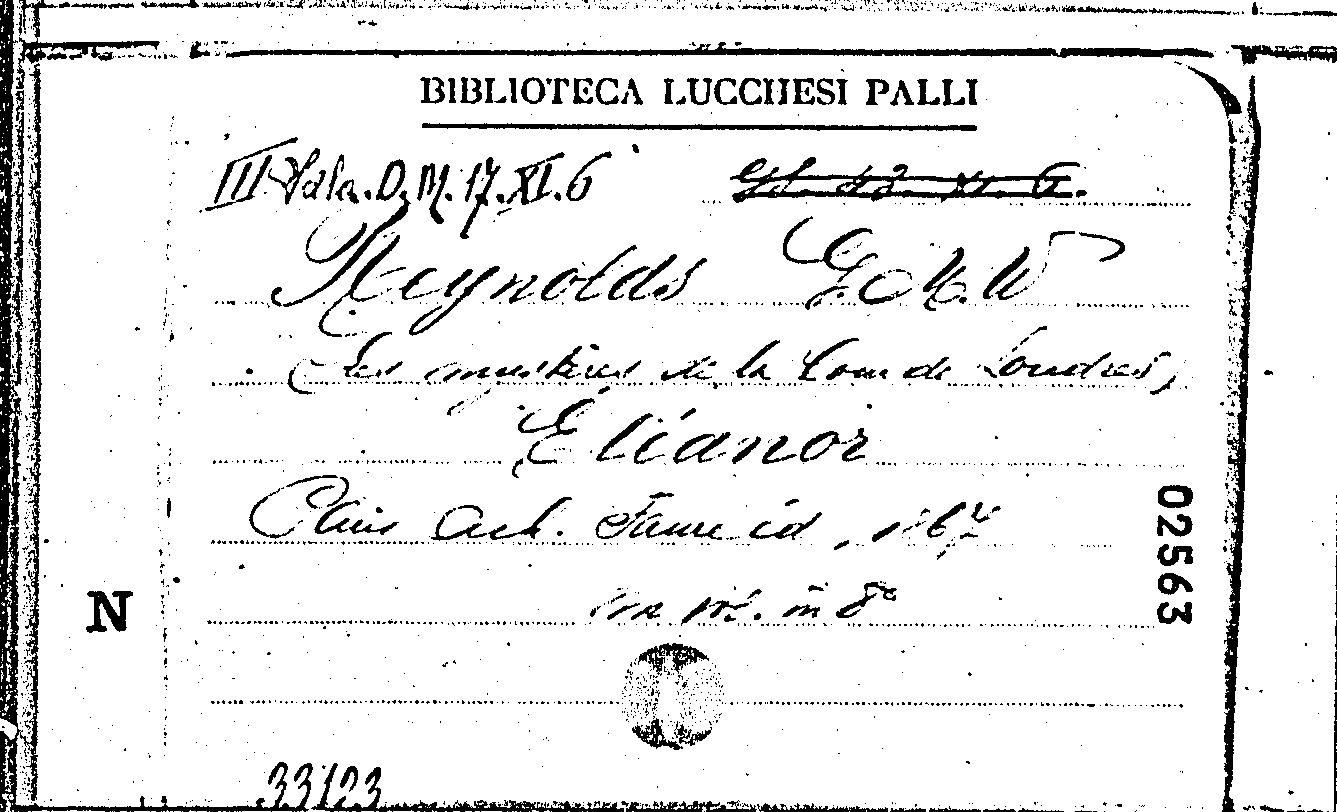 BIBLIOTECA LUCCHESI PALLI
III Sala. D. M. 17. XI. 6
Reynolds G. M. W
(Les mystères de la Cour de Londres)
Elianor
Paris Ach. Faure éd, 1867
un vol. in 8°
02563
N
33123